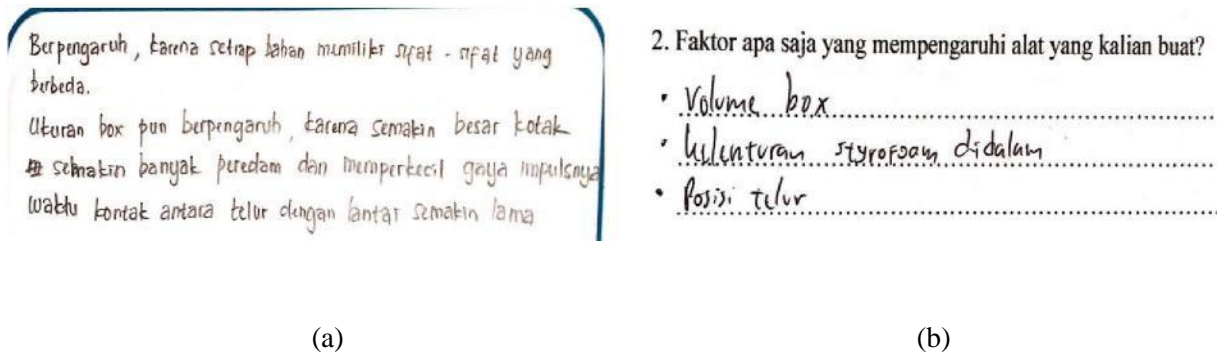 Berpengaruh, karena setiap bahan memiliki sifat - sifat yang
berbeda.
Ukuran box pun berpengaruh, karena semakin besar kotak
semakin banyak peredam dan memperkecil gaya impulsnya
waktu kontak antara telur dengan lantai semakin lama
2. Faktor apa saja yang mempengaruhi alat yang kalian buat?
• Volume box
• kelenturan styrofoam didalam
• Posisi telur
(a)
(b)